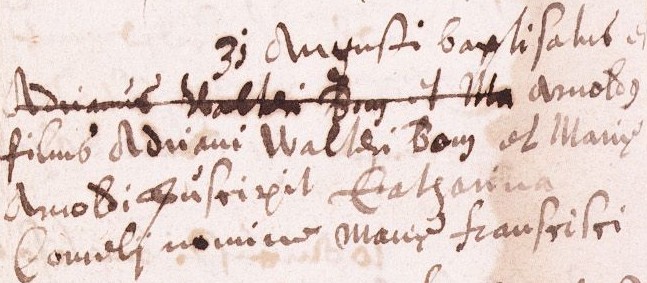 31 Augusti baptisatus e
Adrianus Walteri Bom et Ma Arnoldus
filius Adriani Walteri Bom et Marie
Arnoldi suscipit Catharina
Cornelij nomine Marie fransisci